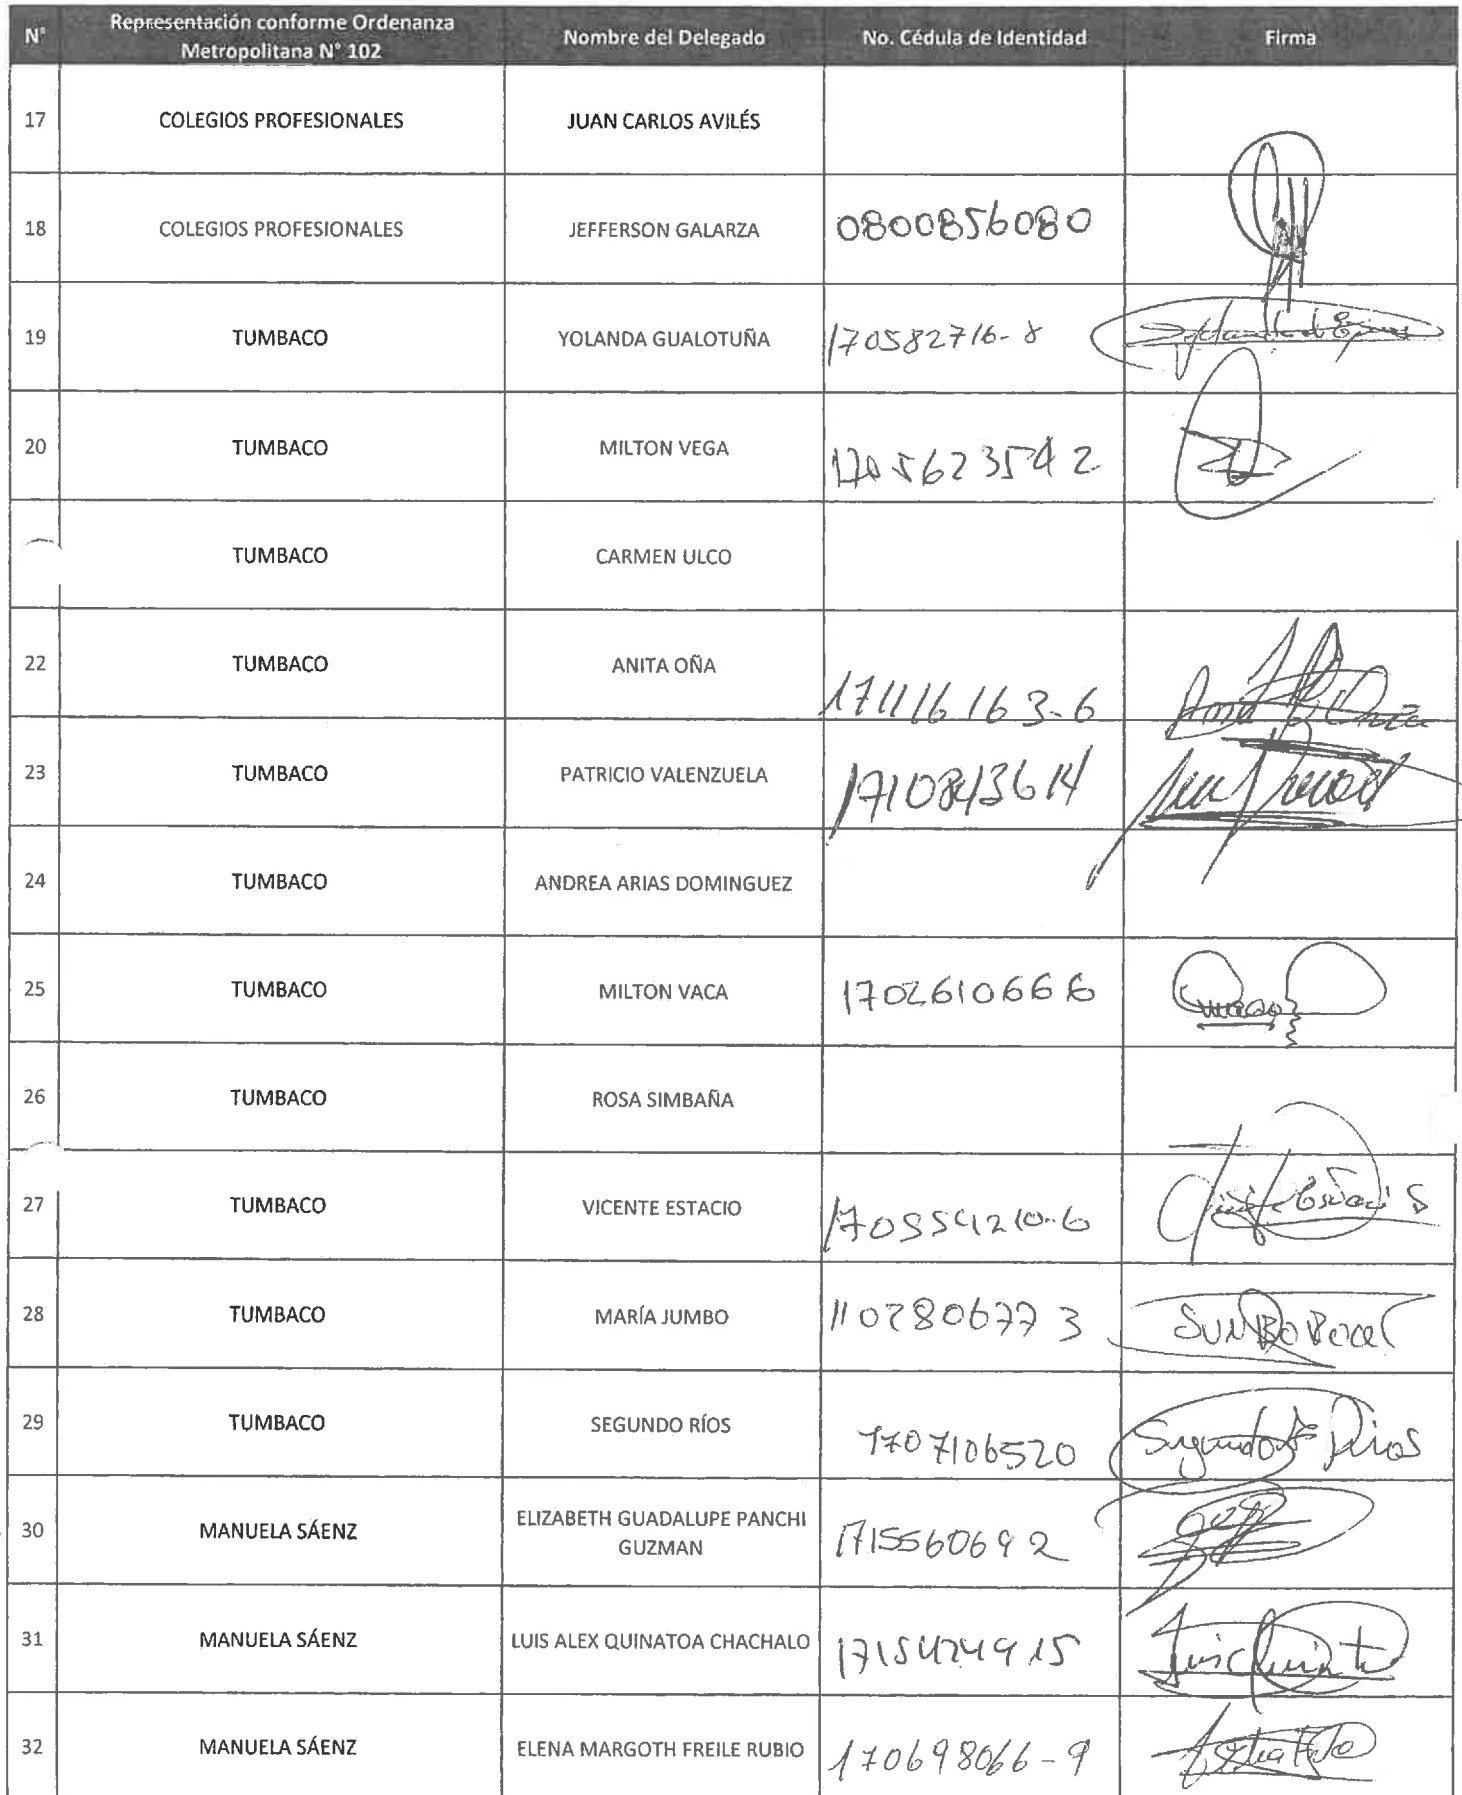 N° Representación conforme Ordenanza Metropolitana N° 102 Nombre del Delegado No. Cédula de Identidad Firma
17 COLEGIOS PROFESIONALES JUAN CARLOS AVILÉS
18 COLEGIOS PROFESIONALES JEFFERSON GALARZA 0800856080
19 TUMBACO YOLANDA GUALOTUÑA 170582716-8
20 TUMBACO MILTON VEGA 1705623542
TUMBACO CARMEN ULCO
22 TUMBACO ANITA OÑA 171116163-6
23 TUMBACO PATRICIO VALENZUELA
24 TUMBACO ANDREA ARIAS DOMINGUEZ
25 TUMBACO MILTON VACA 1702610666
26 TUMBACO ROSA SIMBAÑA
27 TUMBACO VICENTE ESTACIO 170554210-6
28 TUMBACO MARÍA JUMBO 1102806773
29 TUMBACO SEGUNDO RÍOS 1707106520 Segundo Rios
30 MANUELA SÁENZ ELIZABETH GUADALUPE PANCHI GUZMAN 1715560692
31 MANUELA SÁENZ LUIS ALEX QUINATOA CHACHALO 1715424915
32 MANUELA SÁENZ ELENA MARGOTH FREILE RUBIO 170698066-9